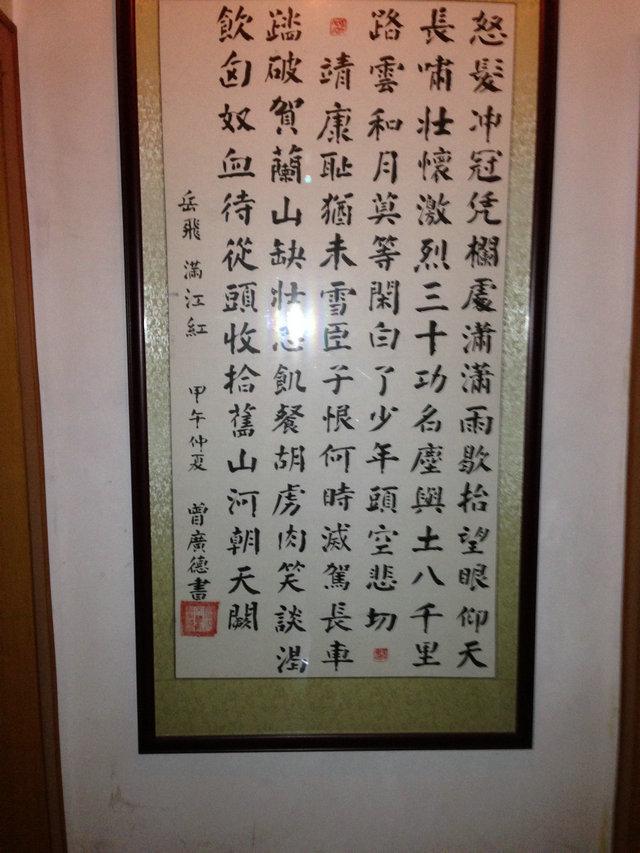 怒髮冲冠凭欄處瀟瀟雨歇抬望眼仰天
長嘯壯懷激烈三十功名塵與土八千里
路雲和月莫等閑白了少年頭空悲切
靖康耻猶未雪臣子恨何時滅駕長車
踏破賀蘭山缺壮志飢餐胡虜肉笑談渴
飲匈奴血待從頭收拾舊山河朝天闕
岳飛 滿江紅 甲午仲夏 曾廣德書